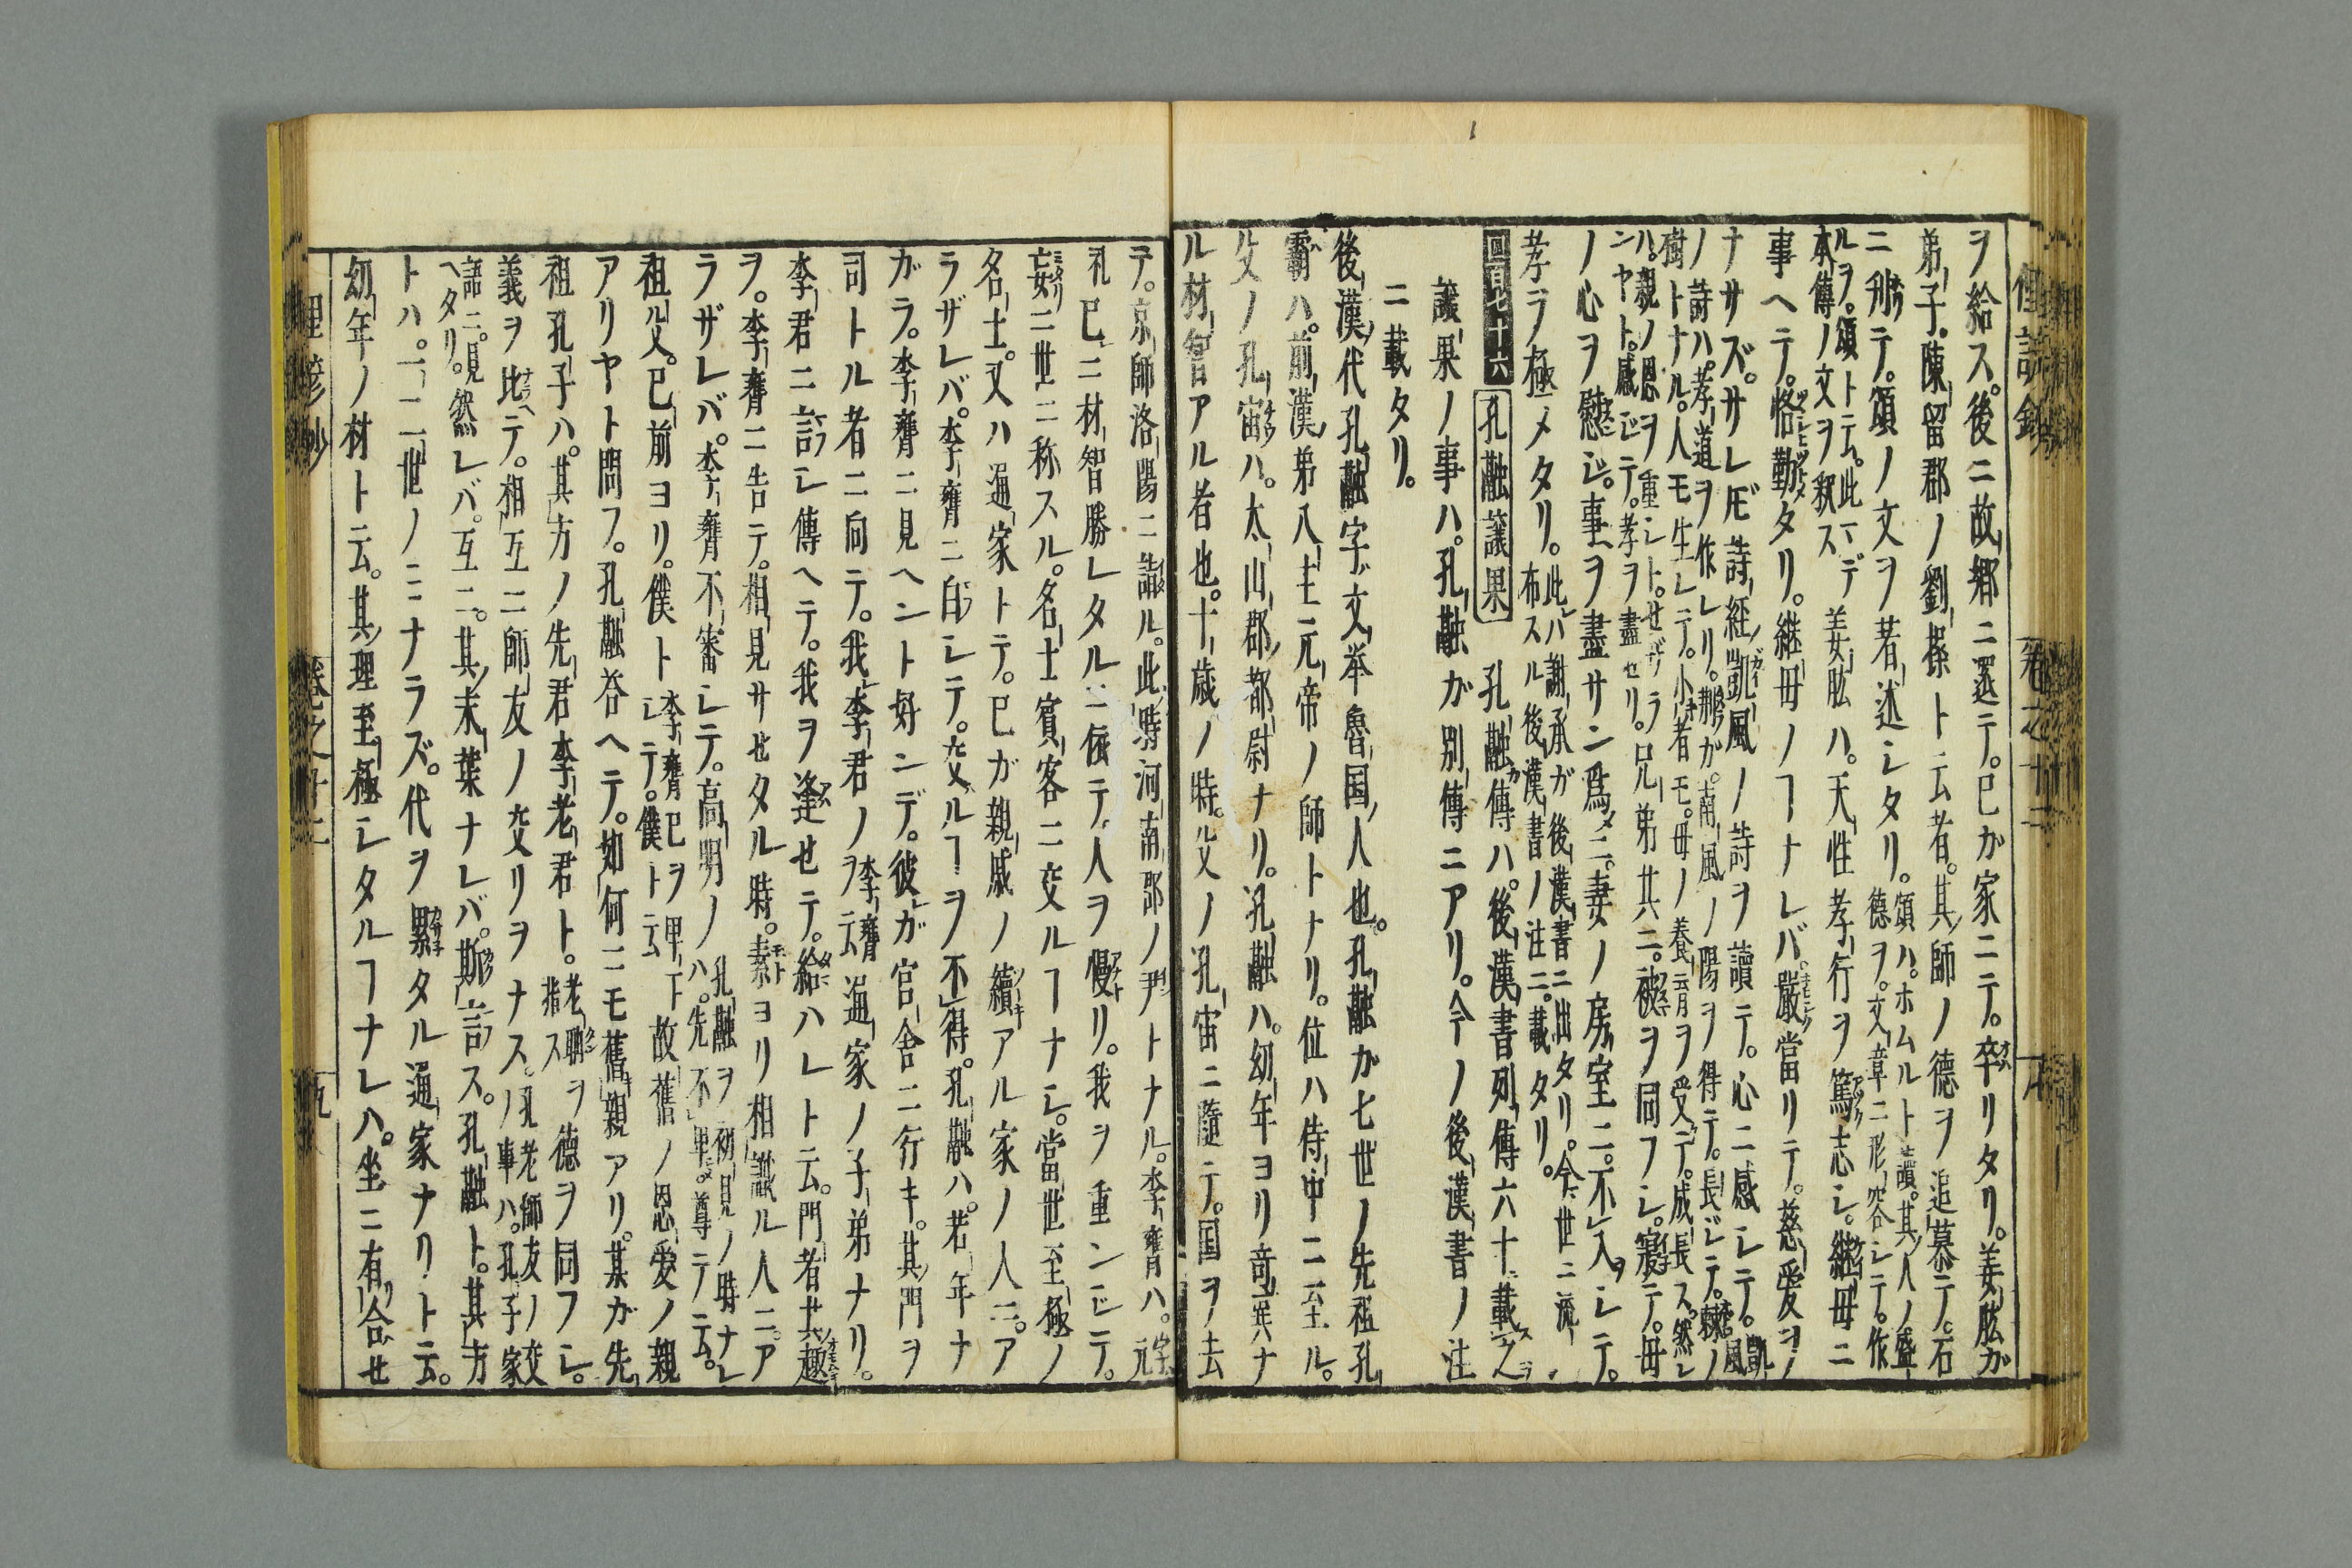 ヲ給ス。後ニ故郷ニ還テ。已カ家ニテ。卒リタリ。姜肱ガ
弟子。陳留郡ノ劉操ト云者。其師ノ德ヲ追慕ニテ。石
ニ刋テ。頌ノ文ヲ著述シタリ。
頌ハ。ホムルト讀。其人ノ盛
德ヲ。文章ニ形容シテ。作
ルヲ。頌ト云。此マデ
本傳ノ文ヲ釈ス
姜肱ハ。天性孝行ヲ篤志シ。継母ニ
事ヘテ。恪勤タリ。継母ノヿナレバ。嚴當リテ。慈愛ヲ
ナサズ。サレドモ詩経凱風ノ詩ヲ讀テ。心ニ感シテ。
凱風
ノ詩ハ。孝道ヲ作レリ。那ガ。南風ノ陽ヲ得テ。長ジテ。棘ノ
樹トナル。人モ生レテ。小者モ。母ノ養育ヲ受テ。成長ス。然レ
ハ。親ノ恩ヲ重シト。セザラ
ンヤト。感ジテ。孝ヲ盡セリ。
兄弟共ニ。被ヲ同フシ。寝テ。母
ノ心ヲ慰ジ。事ヲ盡サン爲ニ。妻ノ房室ニ。不入シテ。
孝ヲ極メタリ。
此ハ謝承ガ後漢書ニ出タリ。今世ニ流
布スル後漢書ノ注ニ。載タリ。
四百七十六 孔融譲果 孔融傳ハ。後漢書列傳六十載之
譲果ノ事ハ。孔融ガ別傳ニアリ。今ノ後漢書ノ注
ニ載タリ。
後漢代孔融字文挙魯国人也。孔融カ七世ノ先祖孔
霸ハ。前漢第八主元帝ノ師トナリ。位ハ侍中ニ至ル。
父ノ孔宙ハ。太山郡都尉ナリ。孔融ハ。幼年ヨリ竒異ナ
ル材智アル者也。十歳ノ時。父ノ孔宙ニ隨テ。国ヲ去
テ。京師洛陽ニ詣ル。此時河南郡ノ尹トナル。李膺ハ。字元
礼已ニ材智勝レタルニ依テ。人ヲ慢リ。我ヲ重ンジテ。
妄ニ世ニ称スル。名士賓客ニ交ルヿナシ。當世至極ノ
名士。又ハ通家トテ。已ガ親戚ノ續アル家ノ人ニ。ア
ラザレバ。李膺ニ白シテ。交ルヿヲ不得。孔融ハ。若年ナ
ガラ。李膺ニ見ヘント好ンデ。彼ガ官舎ニ行キ。其門ヲ
司トル者ニ向テ。我李君ノ
李膺
ヲ云
通家ノ子弟ナリ。
李君ニ言シ傳ヘテ。我ヲ逢セテ。給ハレト云。門者其趣
ヲ。李膺ニ告テ。相見サセタル時。素ヨリ相識ル人ニ。ア
ラザレバ。李膺不審シテ。高明ノ
孔融ヲ初見ノ時ナレ
ハ。先不卑。尊テ云。
祖父。已前ヨリ。僕ト
李膺已ヲ卑下
シテ。僕ト云
故舊ノ恩愛ノ親
アリヤト問フ。孔融荅ヘテ。如何ニモ舊親アリ。某ガ先
祖孔子ハ。其方ノ先君李老君ト。
老聃ヲ
指ス
德ヲ同フシ。
義ヲ比テ。相互ニ師友ノ交リヲナス。
孔老師友ノ交
ノ事ハ。孔子家
語ニ。見
ヘタリ。
然レバ。互ニ。其末葉ナレバ。斯言ス。孔融ト。其方
トハ。一二世ノミナラズ。代ヲ累タル通家ナリト云。
幼年ノ材ト云。其理至極シタルヿナレハ。坐ニ有合セ
卷之十二
五